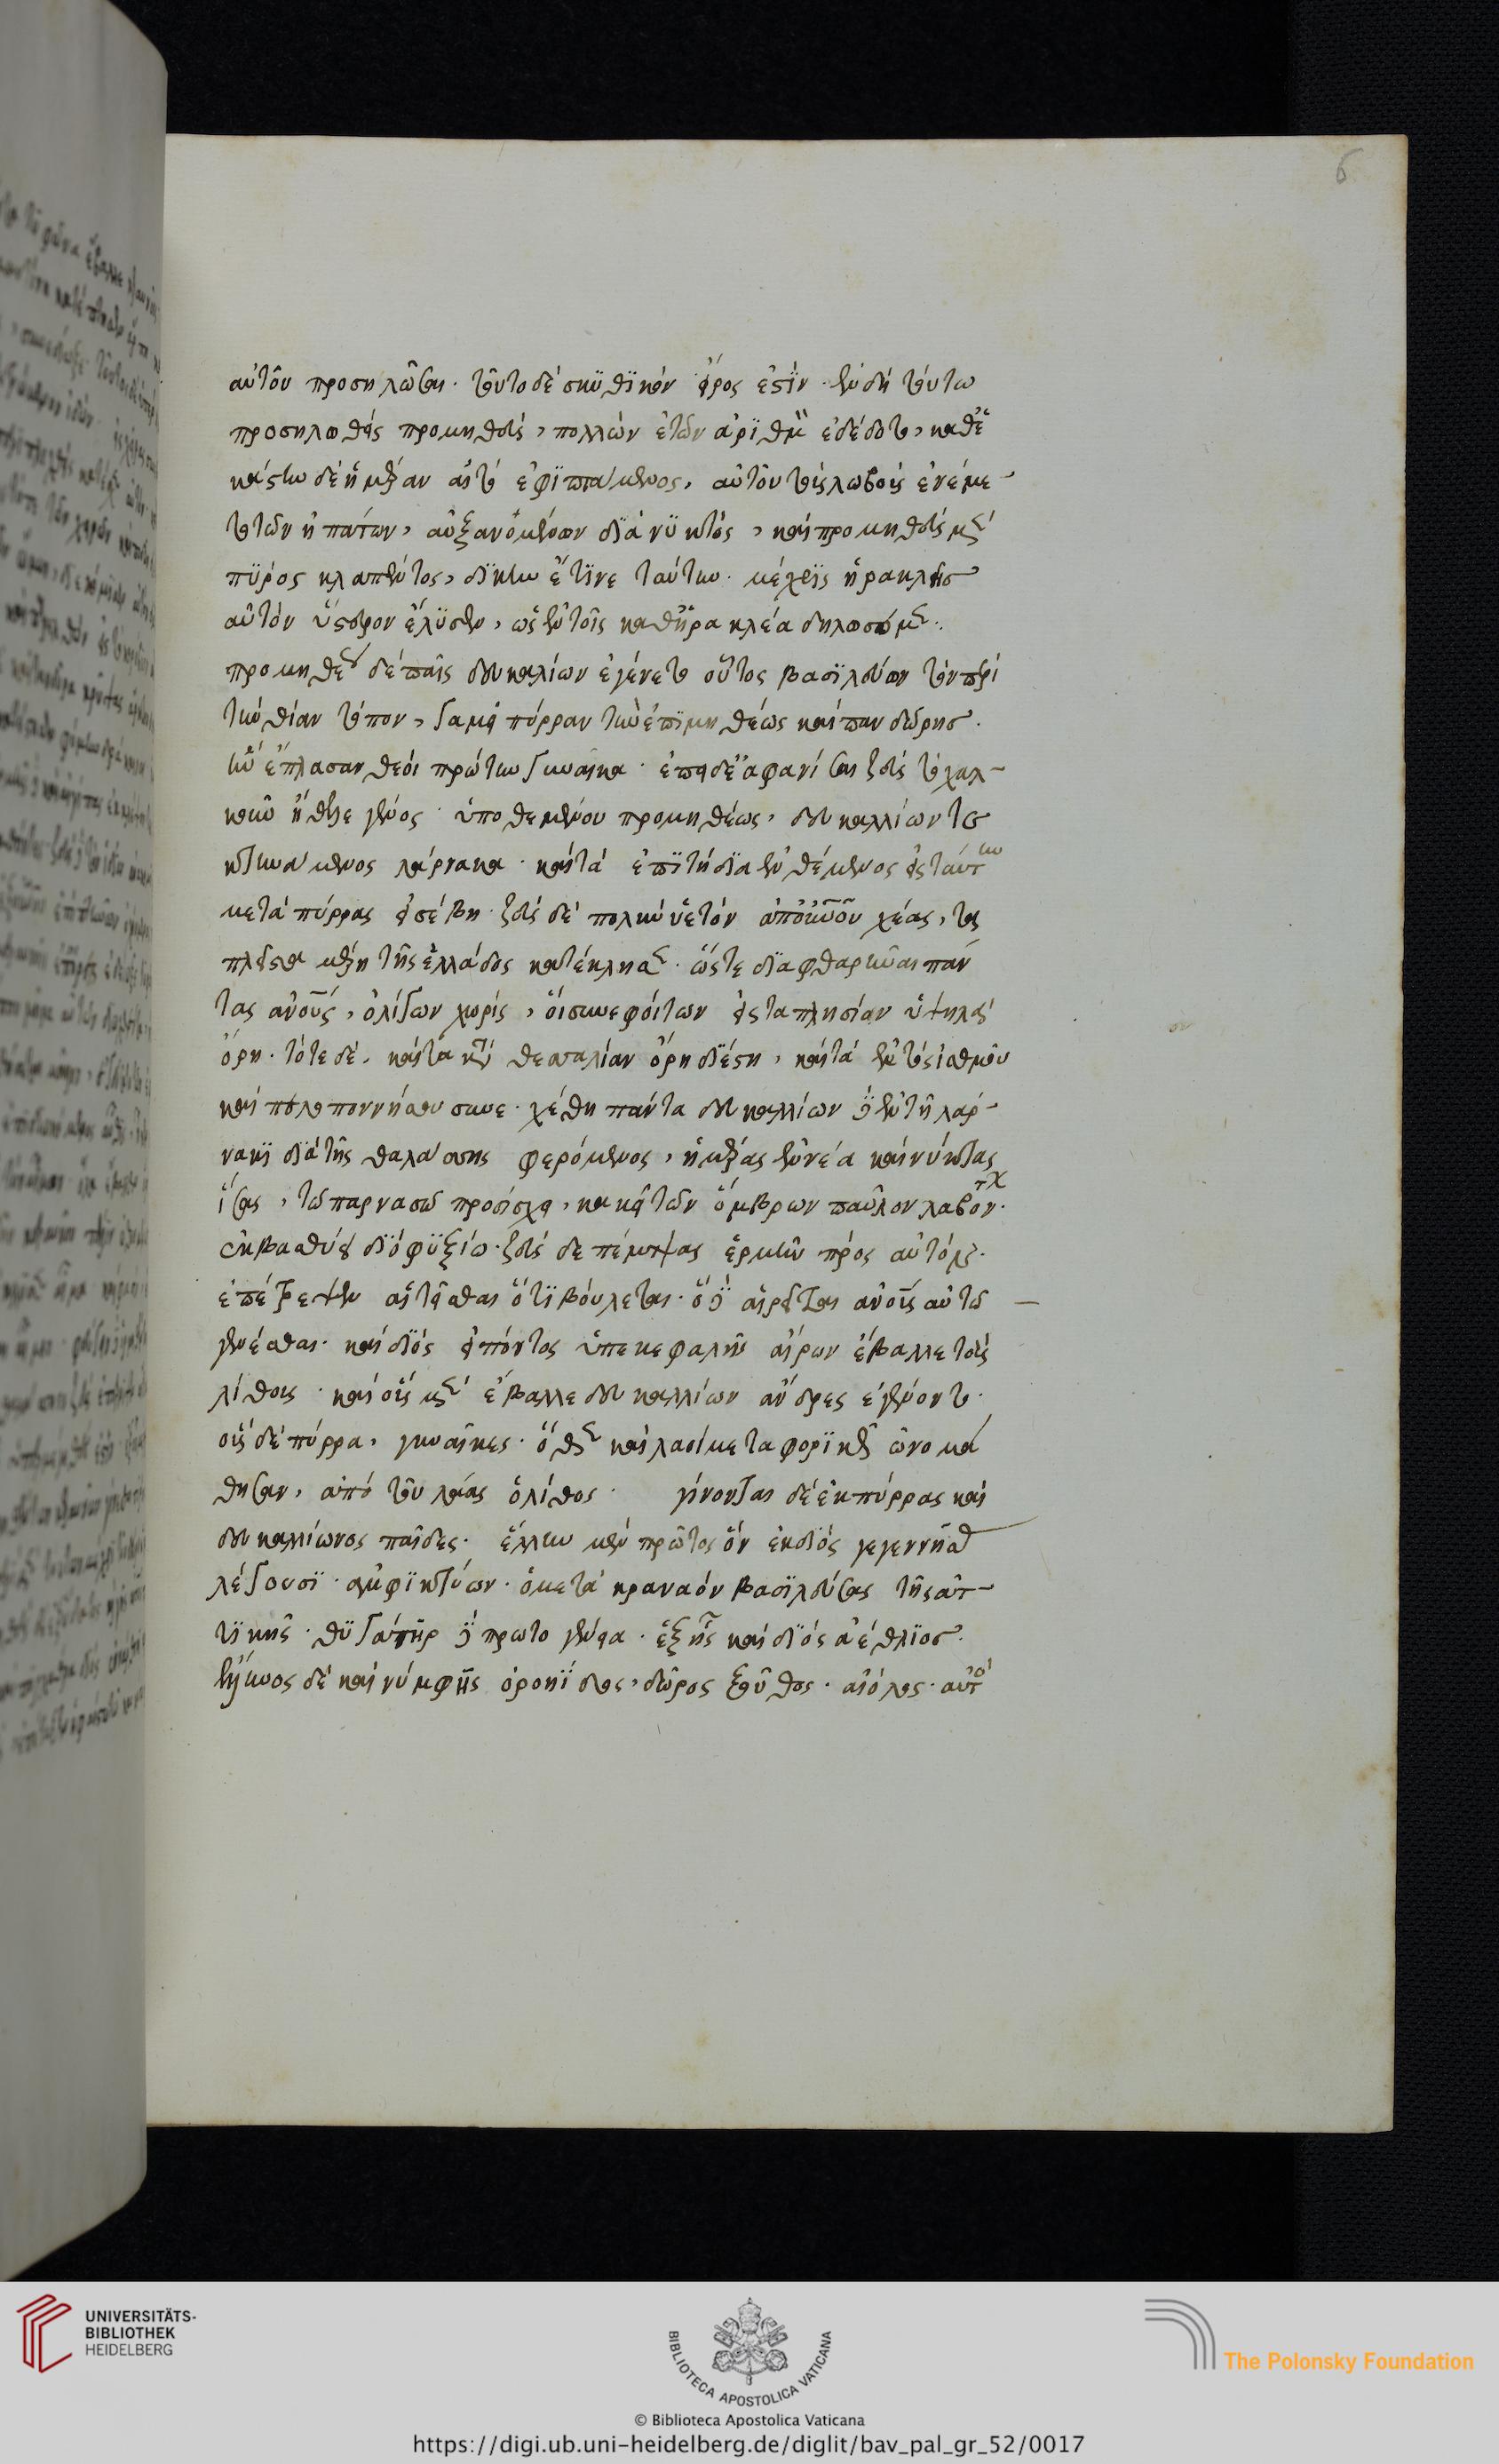 6
αὐτὸν προσηλῶσαι· τοῦτο δὲ σκϋθϊκὸν ὄρος ἐστϊν· ἐν δὴ τούτω
προσηλωθεὶς προμηθεὺς, πολλῶν ἐτῶν ἀρϊθμὸν ἐδέδετο, καθ' ἑ
κάστην δὲ ἡμέραν ἀετὸ ἐφϊπτάμενος, αὐτὸν τοὺς λοβοὺς ἐνέμε
το τῶν ἡπάτων, αὐξανομένων δϊὰ νϋκτὸς, καὶ προμηθεὺς μὲν
πϋρὸς κλαπέντος, δϊκην ἔτϊνε ταύτην· μέχρϊς ἡρακλῆσ
αὐτὸν ὕστερον ἔλϋσεν, ὡς ἐν τοῖς καθ' ἡρακλέα δηλώσομεν·
προμηθέως δὲ παῖς δευκαλίων ἐγένετο οὗτος βασϊλεύων τὸν περὶ
τὴν θίαν τόπον, γαμεῖ πύρραν τὴν ἐπϊμηθέως καὶ πανδώρησ·
ἣν ἔπλασαν θεόι πρώτην γυναῖκα· ἐπεὶ δὲ ἀφανίσαι ζεὺς τὸ χαλ
κοῦν ἤθελε γένος· ὑποθεμένου προμηθέως, δευκαλλίων τε
κτηνάμενος λάρνακα· καὶ τὰ ἐπϊτήδϊα ἐνθέμενος εἰς ταύτην
μετὰ πύρρας εἰσέβη· ζεὺς δὲ πολὺν ὑετὸν ἀπ' οὐρανοῦ χέας, τὰ
πλεῖστα μέρη τῆς ἑλλάδος κατέκλησεν· ὥστε δϊαφθαρῆναι πάν
τας ἀνους, ὀλίγων χωρὶς, ὁὶ συνεφόιτων εἰς τα πλησίαν ὑψηλὰ
ὄρη· τότε δὲ. καὶ τὰ κατὰ θεσσαλίαν ὄρη δϊέστη, καὶ τὰ ἐντὸς ἰσθμοῦ
καὶ πελοποννήσου συνε· χέθη πάντα δευκαλλίων δὲ ἐν τῆ λάρ
νακϊ δϊὰ τῆς θαλάσσης φερόμενος, ἡμέρας ἐννέα καὶ νύκτας
ἴσας, τῶ παρνασῶ προσίσχει, κακεῖ τῶν ὄμβρων παῦλον λαβόντων·
ἐκβασθὺς δϊὸ φϋξίω· ζεὺς δε πέμψας ἑρμῆν πρὸς αὐτὸν·
ἐπέτρεψεν αἱτεῖσθαι ὅτϊ βούλεται· ὁ δὲ αἱρεῖται ἀνους αὐτῶ
γενέσθαι· καὶ δϊὸς εἰπόντος ὑπὲ κεφαλῆν αἴρων ἔβαλλε τοὺς
λίθους· καὶ οὓς μὲν ἔβαλλε δευκαλλίων ἄνδρες ἐγένοντο·
οὓς δὲ πύρρα, γυναῖκες· ὅθεν καὶ λαοὶ μεταφορϊκῶς ὠνομά
θησαν, ἀπὸ τοῦ λάας ὁ λίθος· γίνονται δὲ ἐκ πύρρας καὶ
δευκαλλίωνος παῖδες· ἕλλην μὲν πρῶτος ὃν ἐκ δϊὸς γεγεννῆσθ
λέγουσϊ· ἀμφϊκτύων· ὁ μετὰ κραναὸν βασϊλεύσας τῆς ἀτ
τϊκῆς· θϋγάτηρ δὲ πρωτογένεια· ἐξ ἧς καὶ δϊὸς ἀέθλϊος·
ἕλληνος δὲ καὶ νύμφης ὀροηϊδος, δῶρος ξοῦθος· αἴολος· αὐτὸ
UNIVERSITÄTS-
BIBLIOTHEK
HEIDELBERG
BIBLIOTECA APOSTOLICA VATICANA
The Polonsky Foundation
© Biblioteca Apostolica Vaticana
https://digi.ub.uni-heidelberg.de/diglit/bav_pal_gr_52/0017